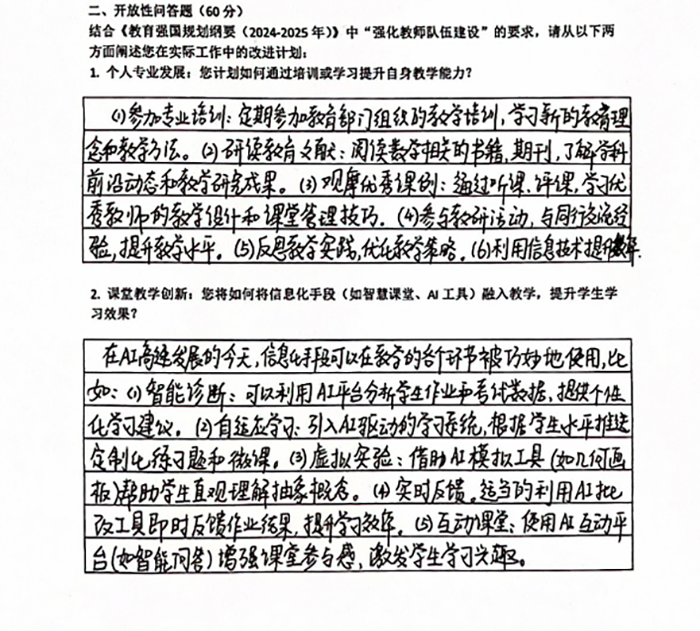 二、开放性问答题（60 分）
结合《教育强国规划纲要（2024-2025 年）》中“强化教师队伍建设”的要求，请从以下两
方面阐述您在实际工作中的改进计划：
1. 个人专业发展：您计划如何通过培训或学习提升自身教学能力？
(1)参加专业培训：定期参加教育部门组织的教学培训，学习新的教育理
念和教学方法。(2)研读教育文献：阅读数学相关的书籍，期刊，了解学科
前沿动态和教学研究成果。(3)观摩优秀课例：通过听课、评课，学习优
秀教师的教学设计和课堂管理技巧。(4)参与教研活动，与同行交流经
验，提升教学水平。(5)反思教学实践，优化教学策略。(6)利用信息技术提升效率.
2. 课堂教学创新：您将如何将信息化手段（如智慧课堂、AI 工具）融入教学，提升学生学
习效果？
在AI高速发展的今天，信息化手段可以在教学的各个环节被巧妙地使用，比
如：(1)智能诊断：可以利用AI平台分析学生作业和考试数据，提供个性
化学习建议。(2)自适应学习：引入AI驱动的学习系统，根据学生水平推送
定制化练习题和微课。(3)虚拟实验：借助AI模拟工具（如几何画
板）帮助学生直观理解抽象概念。(4)实时反馈。适当的利用AI批
改工具即时反馈作业结果，提升学习效率。(5)互动课堂：使用AI互动平
台（如智能问答）增强课堂参与感，激发学生学习兴趣。